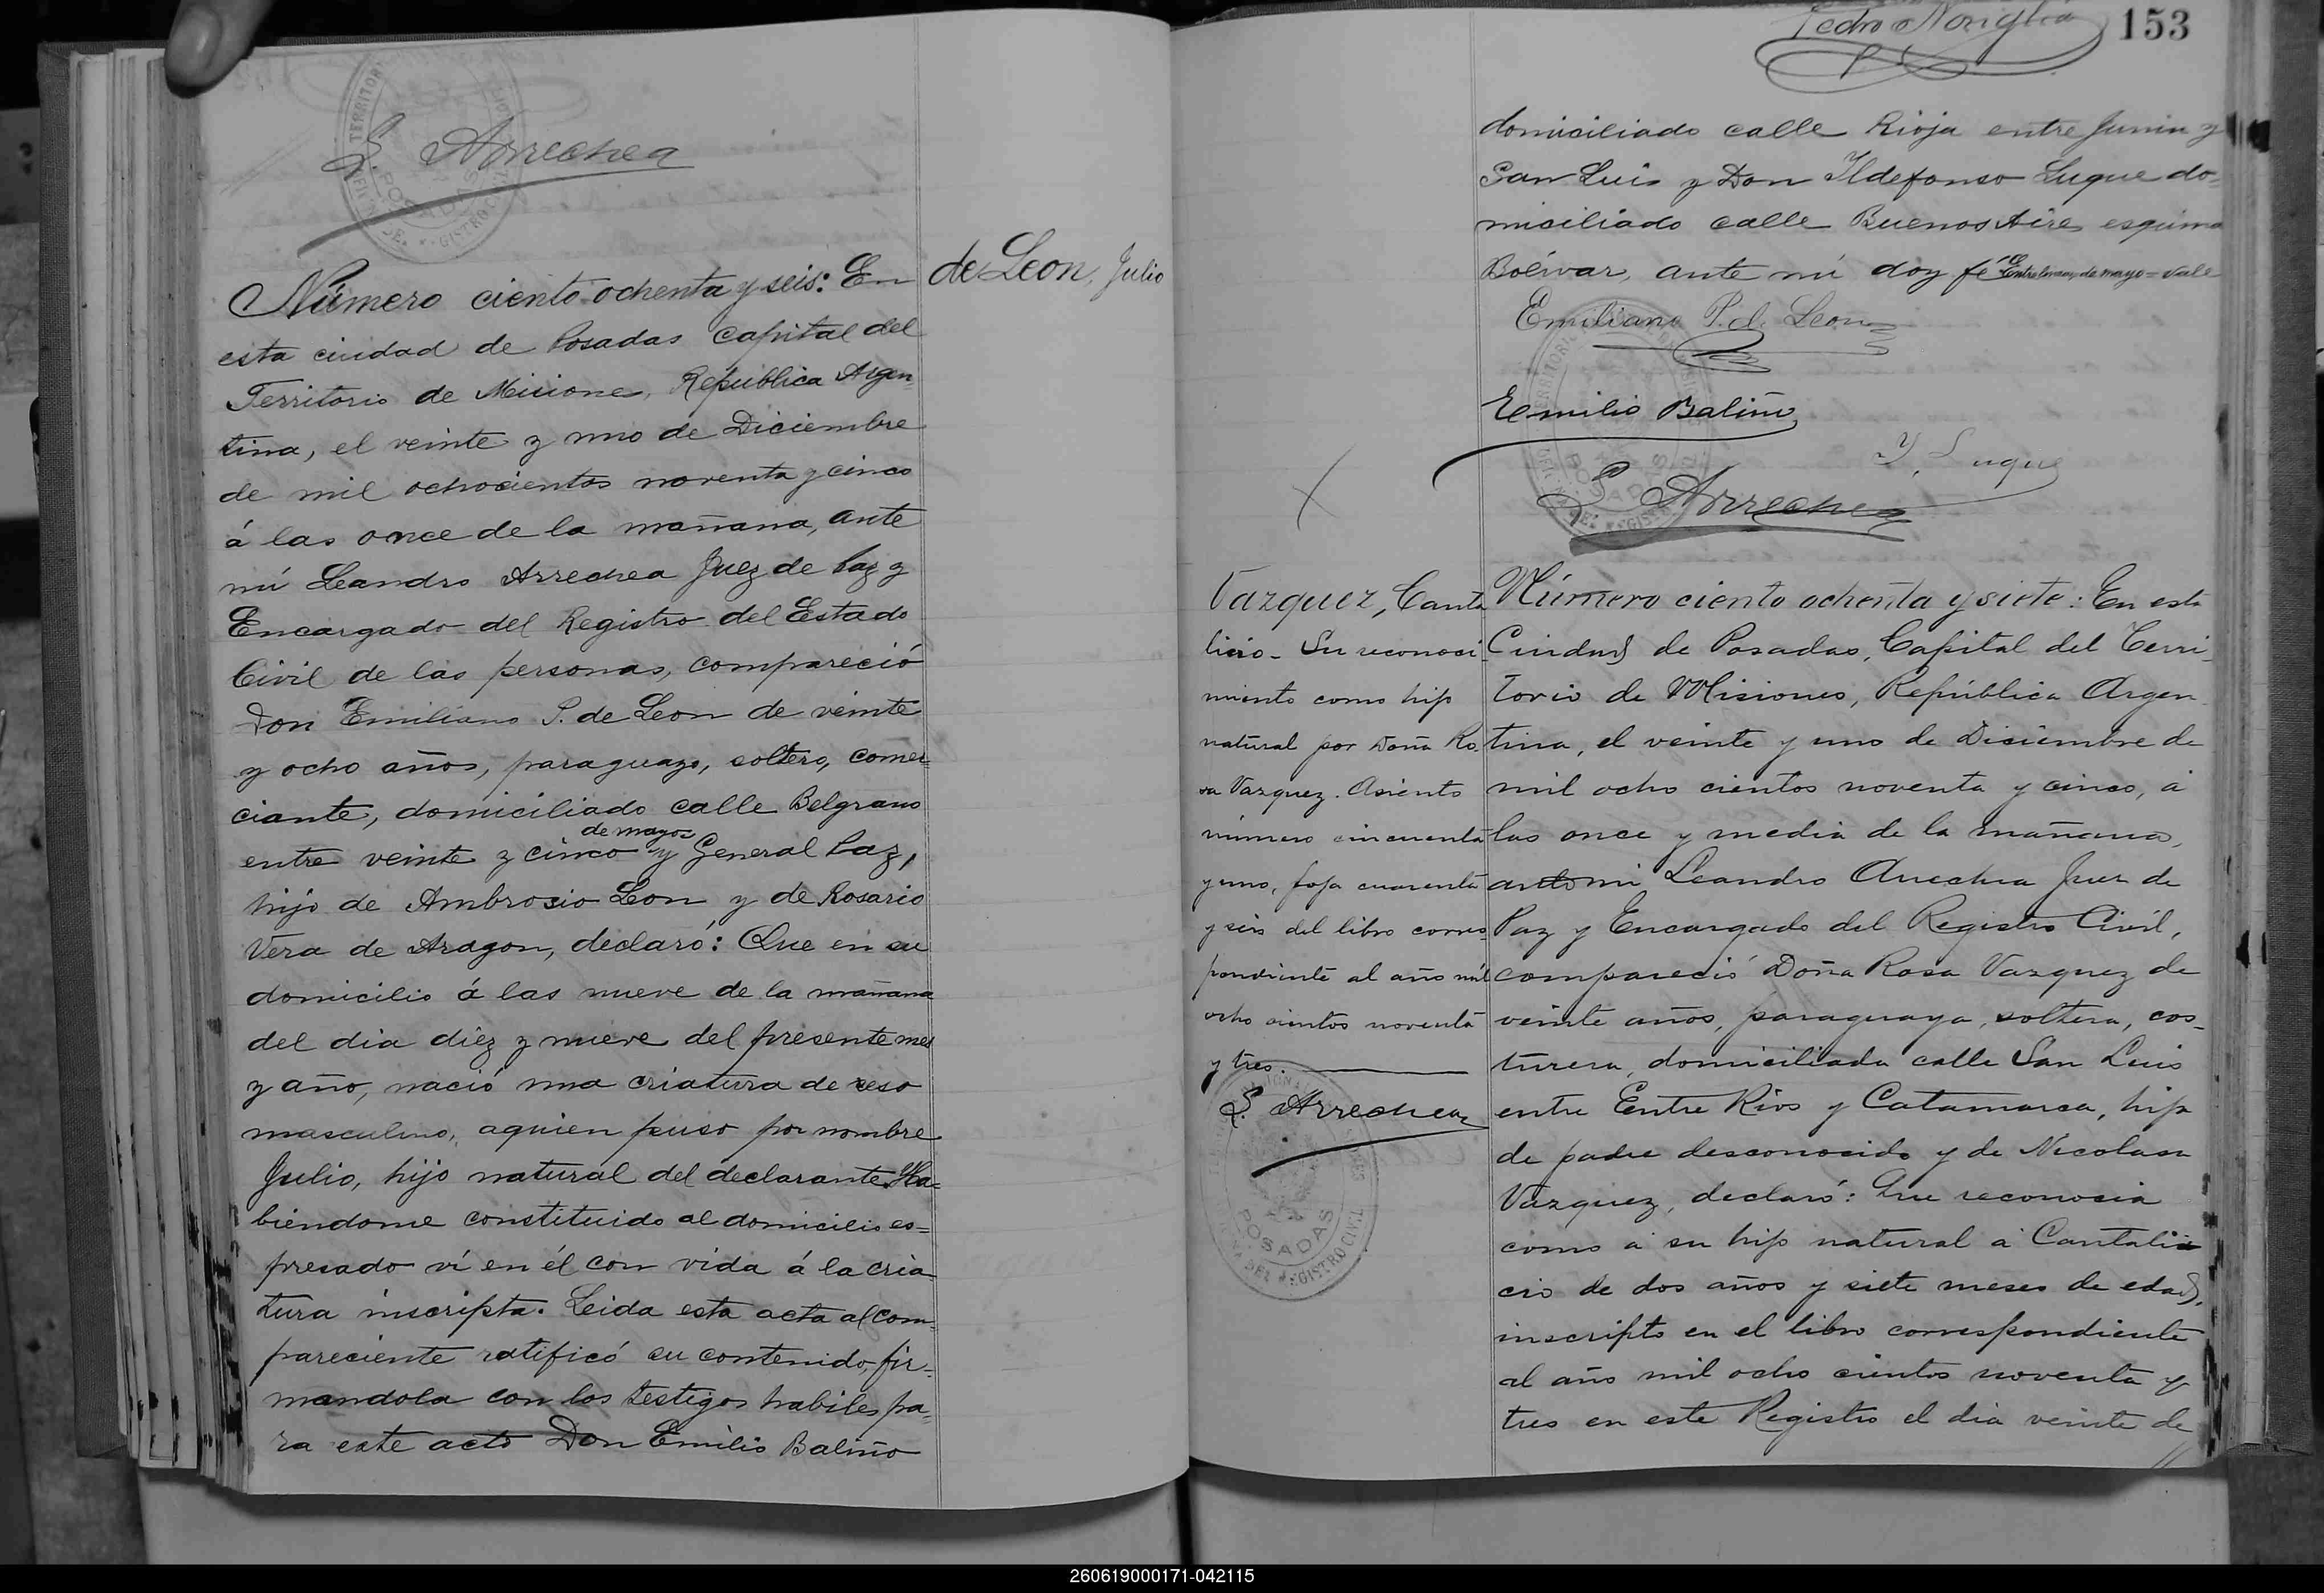 L. Arrechea
Número ciento ochenta y seis: En
de Leon, Julio
esta ciudad de Posadas Capital del
Territorio de Misiones, República Argen-
tina, el veinte y uno de Diciembre
de mil ochocientos noventa y cinco
á las once de la mañana, ante
mí Leandro Arrechea Juez de Paz y
Encargado del Registro del Estado
Civil de las personas, compareció
Don Emiliano P. de Leon de veinte
y ocho años, paraguayo, soltero, comer-
ciante, domiciliado calle Belgrano
de mayo
entre veinte y cinco y General Paz,
hijo de Ambrosio Leon y de Rosario
Vera de Aragon, declaró: Que en su
domicilio á las nueve de la mañana
del dia diez y nueve del presente mes
y año, nació una criatura de seso
masculino, aquien puso por nombre
Julio, hijo natural del declarante. Ha-
biendome constituido al domicilio es-
presado ví en él con vida á la cria
tura inscripta. Leida esta acta al com-
pareciente ratificó su contenido, fir-
mandola con los testigos habiles pa-
ra este acto Don Emilio Baliño
153
domiciliado calle Rioja entre Junin y
San Luis y Don Ildefonso Luque do-
miciliado calle Buenos Aires esquina
Bolívar, ante mí doy fé Entre lineas, de mayo = Vale
Emiliano P. d. Leon
Emilio Baliño
Y. Luque
L. Arrechea
Vazquez, Canta
licio - Su reconoci-
miento como hijo
natural por Doña Ro-
sa Vazquez. Asiento
número cincuenta
y uno, foja cuarenta
y seis del libro corres-
pondiente al año mil
ocho cientos noventa
y tres.
L. Arrechea
POSADAS
REGISTRO CIVIL
Número ciento ochenta y siete: En esta
Ciudad de Posadas, Capital del Terri-
torio de Misiones, República Argen-
tina, el veinte y uno de Diciembre de
mil ocho cientos noventa y cinco, á
las once y media de la mañana,
ante mi Leandro Arrechea Juez de
Paz y Encargado del Registro Civil,
compareció Doña Rosa Vazquez de
veinte años, paraguaya, soltera, cos-
turera, domiciliada calle San Luis
entre Entre Rios y Catamarca, hija
de padre desconocido y de Nicolasa
Vazquez, declaró: Que reconocia
como á su hijo natural á Cantali
cio de dos años y siete meses de edad,
inscripto en el libro correspondiente
al año mil ocho cientos noventa y
tres en este Registro el dia veinte de
260619000171-042115